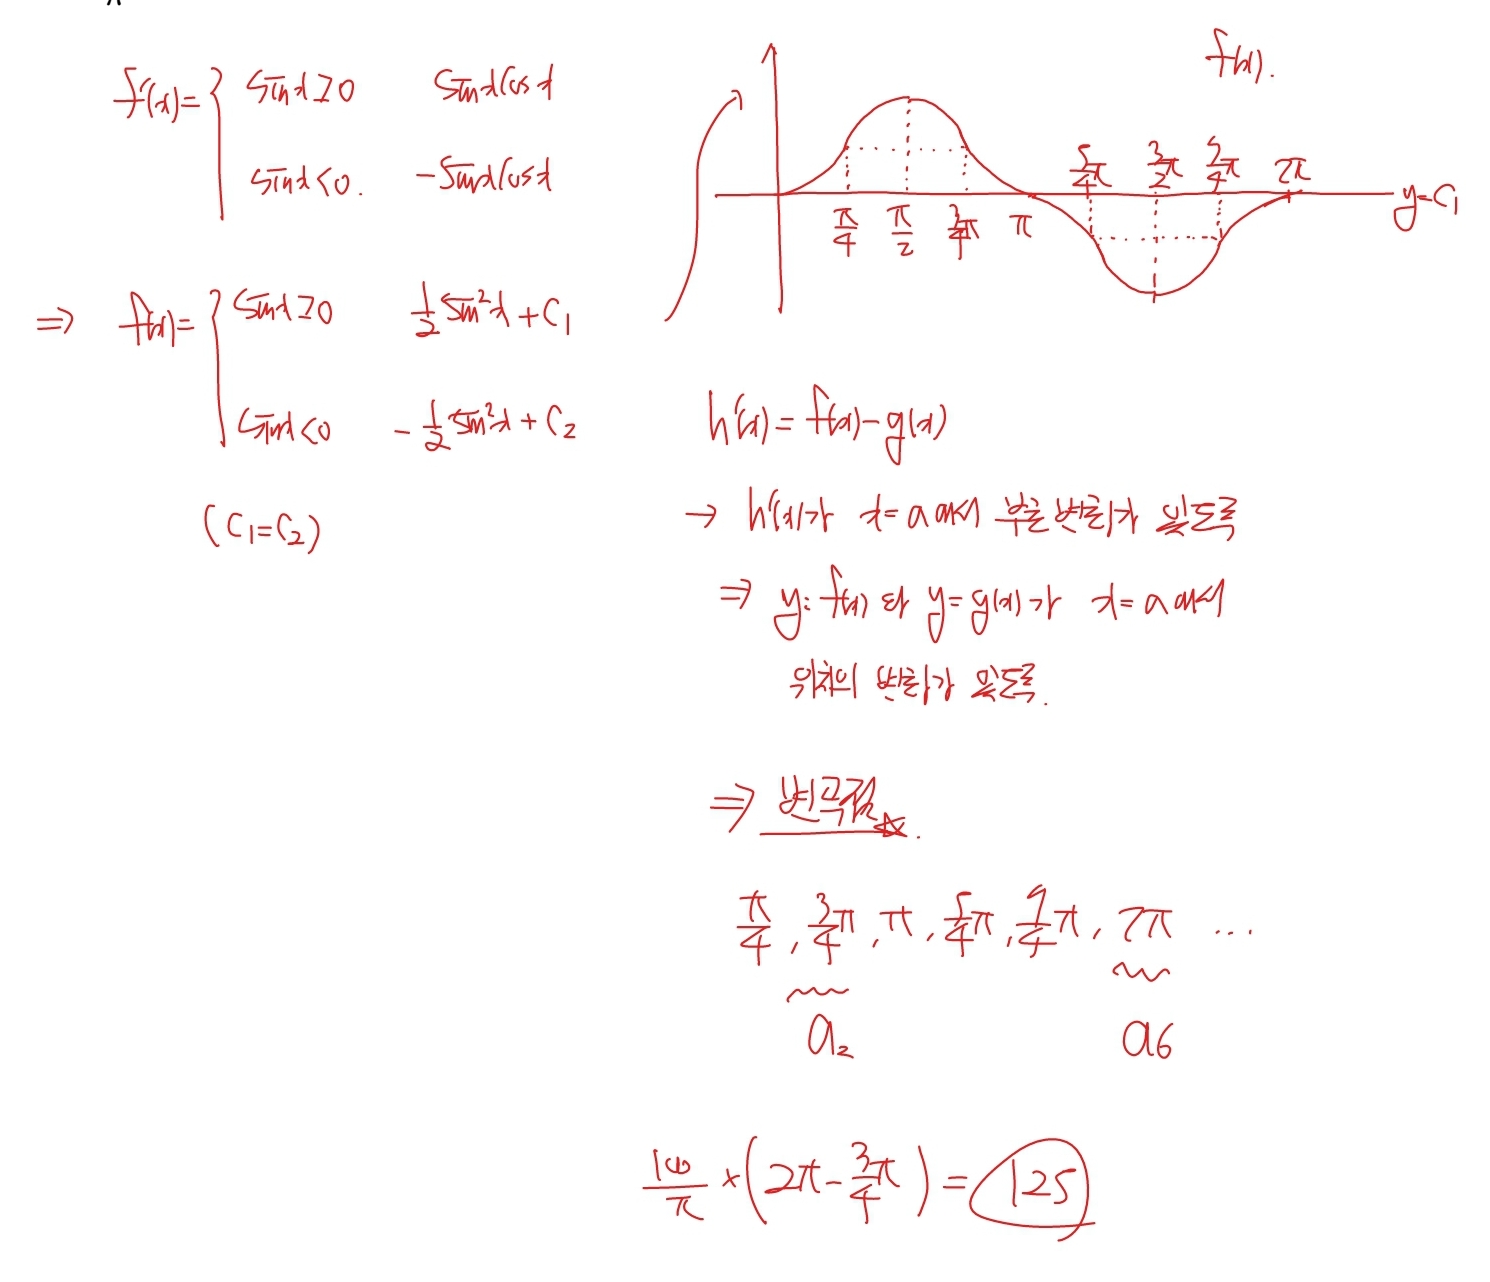 f'(x)= { sinx≥0 sinxcosx
sinx<0. -sinxcosx
⇒ f(x)= { sinx≥0 1/2 sin²x + C₁
sinx<0 -1/2 sin²x + C₂
(C₁=C₂)
f(x).
5/4π 3/2π 7/4π 2π
y=C₁
π/4 π/2 3/4π π
h'(x) = f(x)-g(x)
→ h'(x)가 x=a에서 부호변화가 있도록
⇒ y=f(x)와 y=g(x)가 x=a에서
위치의 변화가 있도록.
⇒ 변곡점☆.
π/4, 3/4π, π, 5/4π, 7/4π, 2π ...
a₂ a₆
100/π × (2π - 3/4π) = 125